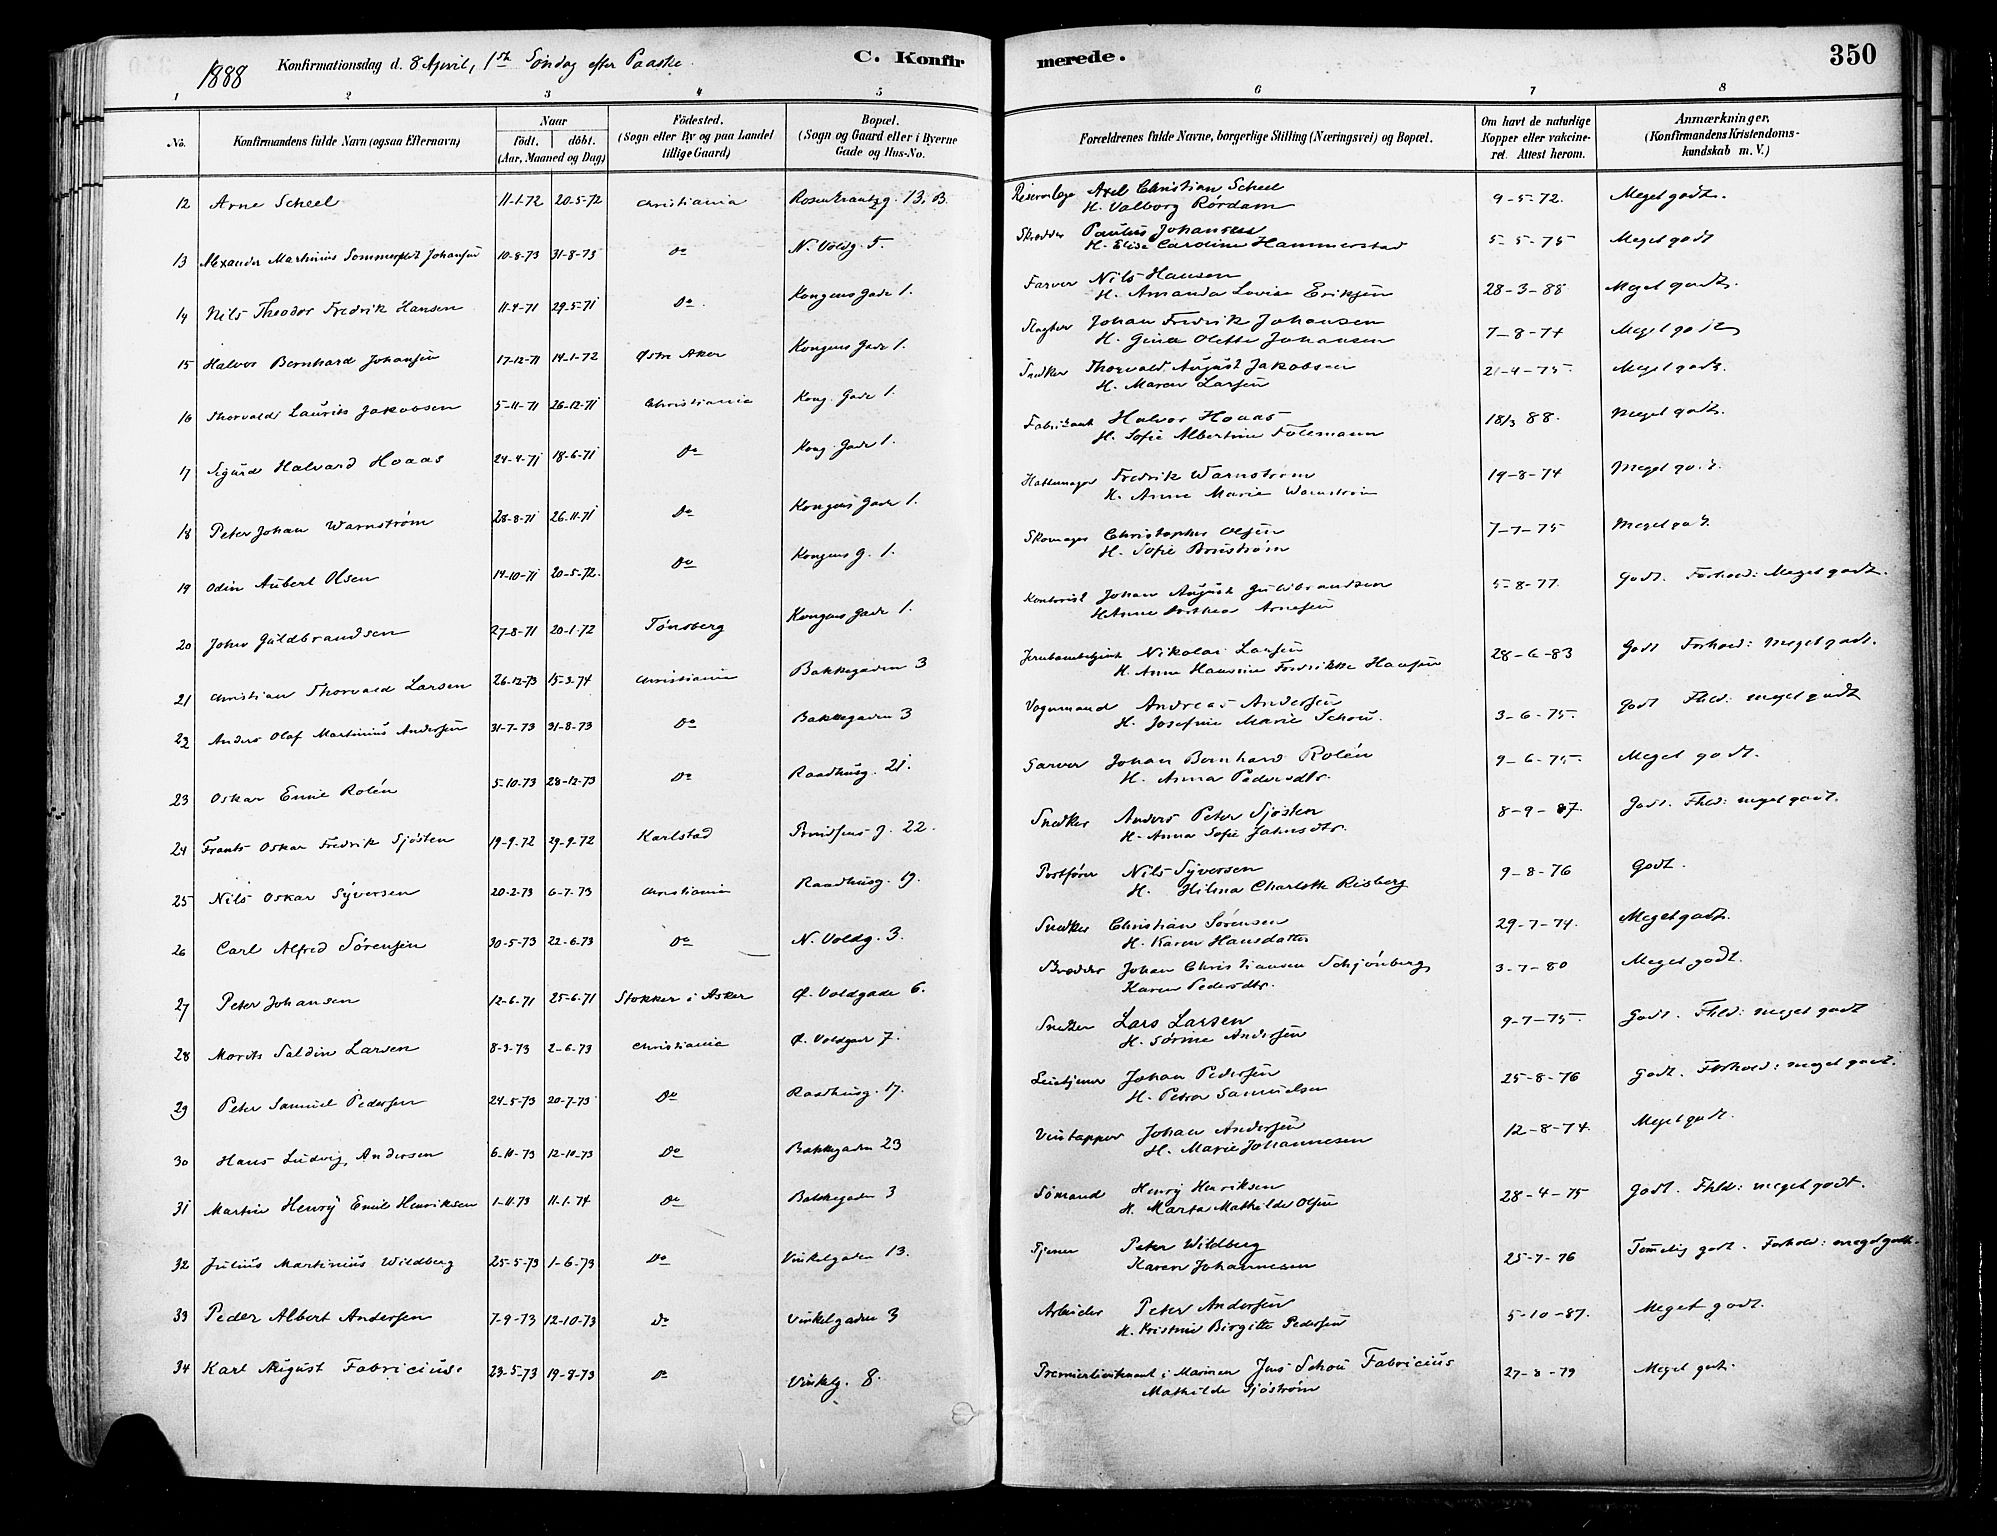 1888 Konfirmationsdag d. 8 April, 1ste Söndag efter Paaske. C. Konfir merede. 350
1 2 3 4 5 6 7 8
No. Konfirmandens fulde Navn (ogsaa Efternavn) Naar födt. döbt. (Aar, Maaned og Dag) Födested. (Sogn eller By og paa Landet tillige Gaard) Bopæl. (Sogn og Gaard eller i Byerne Gade og Hus-No. Forældrenes fulde Navne, borgerlige Stilling (Næringsvei) og Bopæl. Om havt de naturlige Kopper eller vakcineret. Attest herom. Anmærkninger, (Konfirmandens Kristendomskundskab m. V.)
12 Arne Scheel 11-1-72 20-5-72 Christiania Rosenkrantzg. 13. B. Axel Christian Scheel 9-5-72. Meget godt.
H. Valborg Rördam
13 Alexander Martinius Johansen 10-8-73 31-8-73 Do N. Voldg. 5. Skrædder Paulus Johansen 5-5-75 Meget godt
H. Elise Cardine Hammerstad
14 Nils Theodor Fredrik Hansen 11-4-71 29-5-71 Do. Kongens Gade 1. Farver Nils Hansen 28-3-88 Meget godt.
H. Amanda Lovise Eriksen
15 Halvor Bernhard Johansen 17-12-71 14-1-72 Østre Aker Kongens Gade 1. Slagter Johan Fredrik Johansen 7-8-74 Meget godt
H. Gina Olette Johansen
16 Thorvald Laurits Jakobsen 5-11-71 26-12-71 Christiania Kong. Gade 1. Snedker Thorvald August Jakobsen 21-4-75. Meget godt.
H. Maren Larsen
17 Sigurd Halvard Hoaas 24-4-71 18-6-71 Do Kong. Gade 1. Fabrikant Halvor Hoaas 18/3 88. Meget godt.
H. Sofie Albertine Folemann
18 Peter Johan Warnström 28-8-71 26-11-71 Do Kongens Gade 1. Hattemager Fredrik Warnström 19-8-74 Meget godt.
H. Anne Marie Warnström
19 Odin Aubert Olsen 14-10-71 20-5-72. Do Kongens g. 1. Skomager Christopher Olsen 7-7-75 Meget godt.
H. Sofie
20 Johan Guldbrandsen 27-8-71 20-1-72 Tönsberg Kongens Gade 1. Kontorist Johan August Guldbrandsen 5-8-77. Godt. Forhold: Meget godt.
H. Anne Dorthea Arnesen
21 Christian Thorvald Larsen 26-12-73 15-3-74 Christiania Bakkegaden 3 Nikolai Larsen 28-6-83 Godt Forhold: meget godt.
H. Anne Fredrikke Hansen
22 Anders Olaf Martinius Andersen 31-7-73 31-8-73 Do Bakkegaden 3 Vognmand Andreas Andersen 3-6-75. Godt Fhld: meget godt
H. Josefine Marie Schou.
23 Oskar Emil Rolén 5-10-73 28-12-73 Do Raadhusg. 21. Garver Johan Bernhard Rolén 9-6-75. Meget godt.
H. Anna Pedersdtr.
24 Frants Oskar Fredrik Sjösten 19-9-72 29-9-72 Karlstad 22. Snedker Anders Peter Sjösten 8-9-87. Godt. Fhld: meget godt.
H. Anna Sofie Jahnsdtr.
25 Nils Oskar Syversen 20-2-73 6-7-73 Christiania Raadhusg. 19. Postförer Nils Syversen 9-8-76 Godt.
H. Hilma Charlotte Risberg
26 Carl Alfred Sörensen 30-5-73 22-6-73 Do N. Voldg. 3. Snedker Christian Sörensen 29-7-74. Meget godt.
H. Karen Hansdatter
27 Peter Johansen 12-6-71 25-6-71 Stokker i Asker Ø. Voldgade 6. Johan Christiansen Schjönberg 3-7-80 Meget godt.
Karen Pedersdtr.
28 Morits Saldin Larsen 8-3-73 2-6-73 Christiania Ø. Voldgade 7. Snedker Lars Larsen 9-7-75. Godt. Fhld: meget godt
H. Sörine Andersen
29 Peter Samuel Pedersen 24-5-73 20-7-73 Do Raadhusg. 17. Johan Pedersen 25-8-76 Godt. Forhold: meget godt.
H. Petra Samuelsen
30 Hans Ludvig Andersen 6-11-73 12-10-73 Do Bakkegaden 23 Vintapper Johan Andersen 12-8-74. Meget godt.
H. Marie Johannesen
31 Martin Henry Emil Henriksen 1-11-73 11-1-74 Do Bakkegaden 3 Sömand Henry Henriksen 28-4-75 Godt. Fhld: meget godt.
H. Marta Mathilde Olsen
32 Julius Martinius Wildberg 25-5-73 1-6-73 Do Vinkelgaden 13. Tjener Peter Wildberg 25-7-76 Temmelig godt. Forhold: meget godt.
Karen Johannesen
33 Peder Albert Andersen 7-9-73 12-10-73 Do Vinkelgaden 3 Arbeider Peter Andersen 5-10-87. Meget godt.
H. Kristine Birgitte Pedersen
34 Karl August Fabricius. 23-5-73 19-9-73 Do Vinkelg. 8. Premierlieutenant i Marinen Jens Schou Fabricius 27-8-79 Meget godt.
Mathilde Sjöström